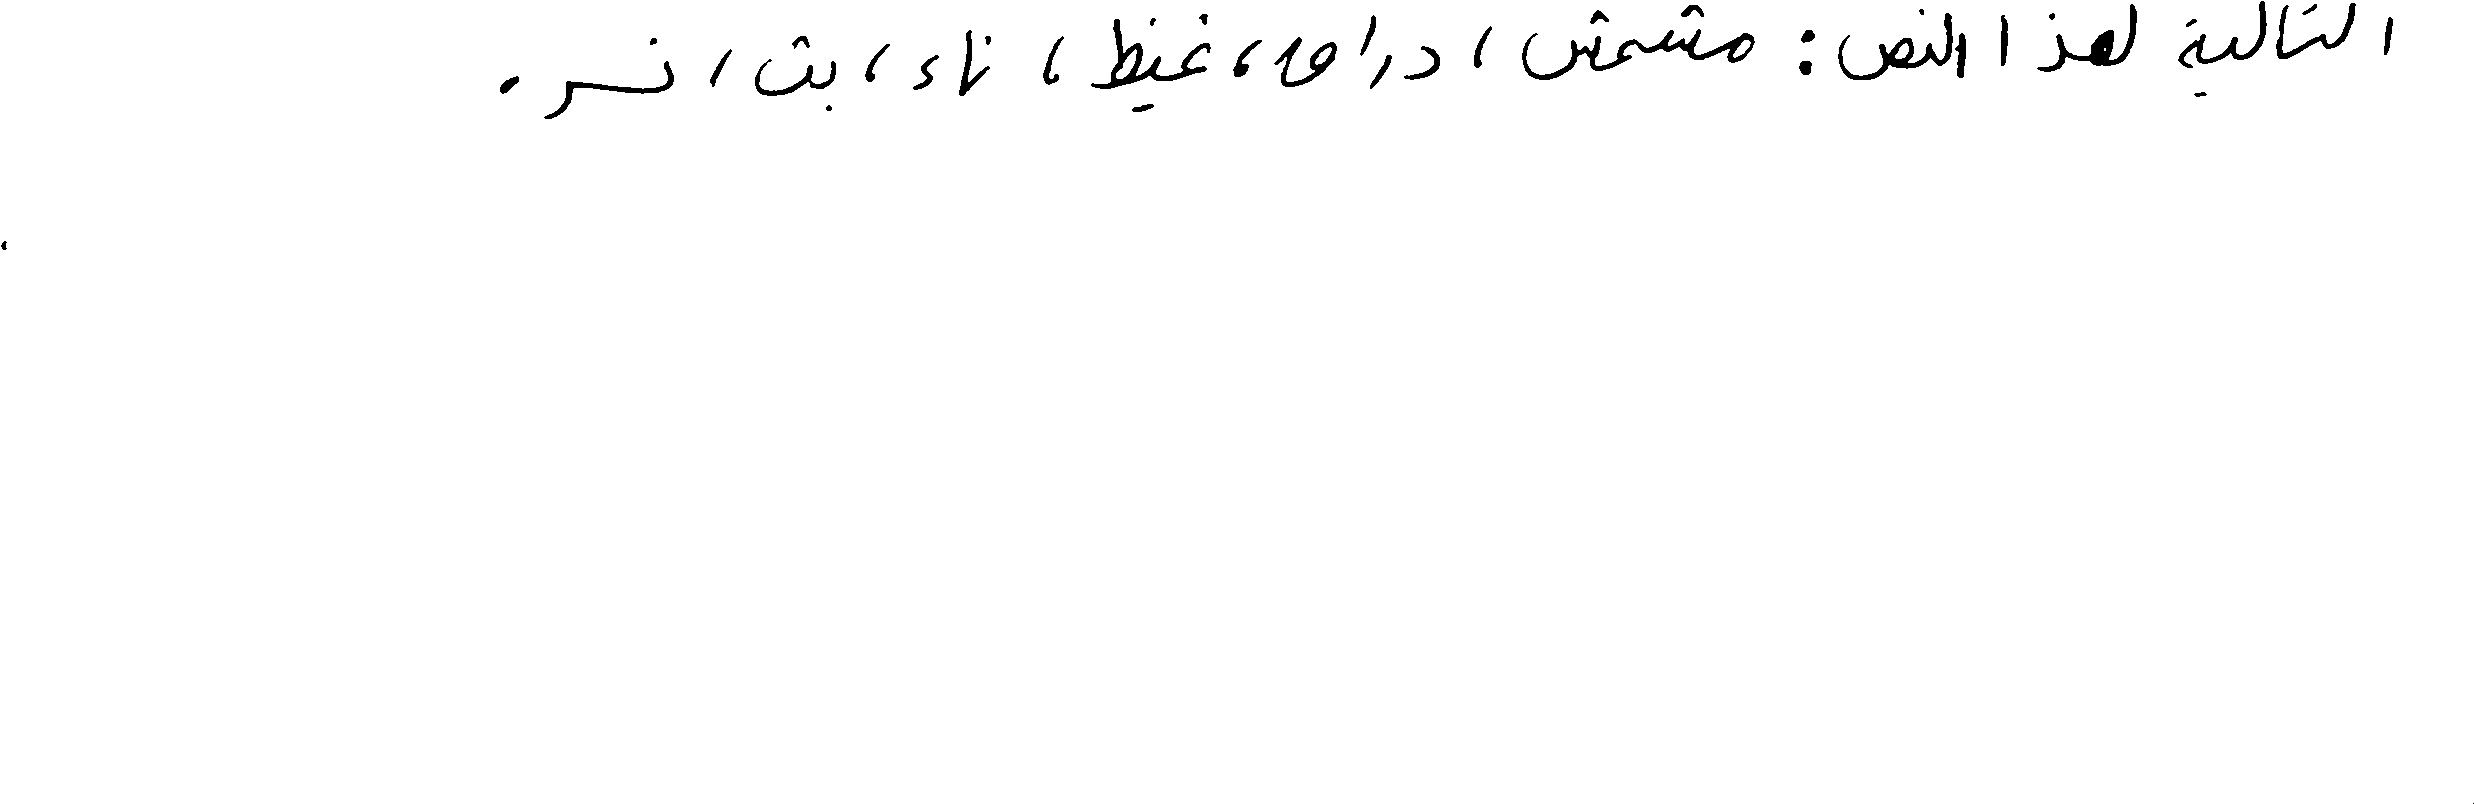 التالية لهذا النص: مشمش، دراق، غيظ، ناء، بت، نسر.